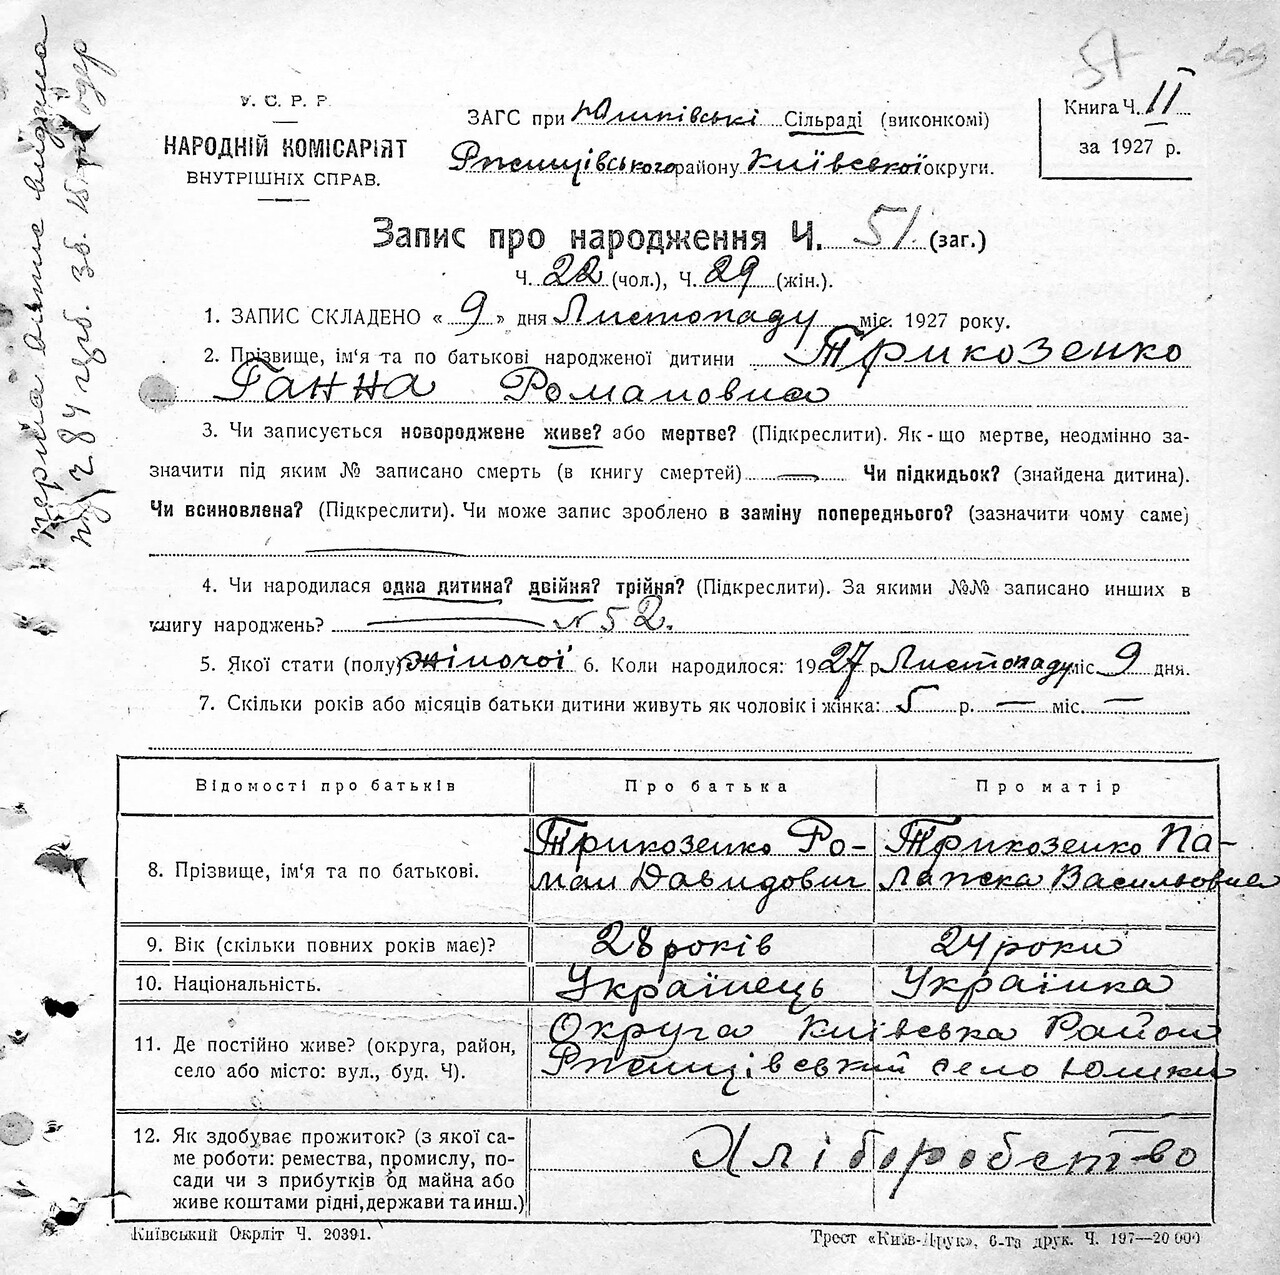 51
У. С. Р. Р.
НАРОДНІЙ КОМІСАРІЯТ
ВНУТРІШНІХ СПРАВ.
ЗАГС при Юшківські Сільраді (виконкомі)
Ржищівського району Київської округи.
Книга Ч. II
за 1927 р.
Запис про народження Ч. 51 (заг.)
Ч. 22 (чол.), Ч. 29 (жін.).
1. ЗАПИС СКЛАДЕНО « 9 » дня Листопаду міс. 1927 року.
2. Прізвище, ім'я та по батькові народженої дитини Трикозенко
Ганна Романовна
3. Чи записується новороджене живе? або мертве? (Підкреслити). Як-що мертве, неодмінно за-
значити під яким № записано смерть (в книгу смертей) — Чи підкидьок? (знайдена дитина).
Чи всиновлена? (Підкреслити). Чи може запис зроблено в заміну попереднього? (зазначити чому саме)
—
4. Чи народилася одна дитина? двійня? трійня? (Підкреслити). За якими №№ записано инших в
книгу народжень? — № 52.
5. Якої стати (полу) жіночої 6. Коли народилося: 1927 р Листопаду міс 9 дня.
7. Скільки років або місяців батьки дитини живуть як чоловік і жінка: 5 р. — міс. —
Відомості про батьків Про батька Про матір
8. Прізвище, ім'я та по батькові. Трикозенко Ро-
ман Давидович Трикозенко Па-
лажка Васильовна
9. Вік (скільки повних років має)? 28 років 24 роки
10. Національність. Українець Українка
11. Де постійно живе? (округа, район,
село або місто: вул., буд. Ч). Округа Київська Район
Ржищівський село Юшки
12. Як здобуває прожиток? (з якої са-
ме роботи: ремества, промислу, по-
сади чи з прибутків од майна або
живе коштами рідні, держави та инш.) Хліборобство
Київський Окрліт Ч. 20391.
Трест «Київ-Друк», 6-та друк. Ч. 197—20 000